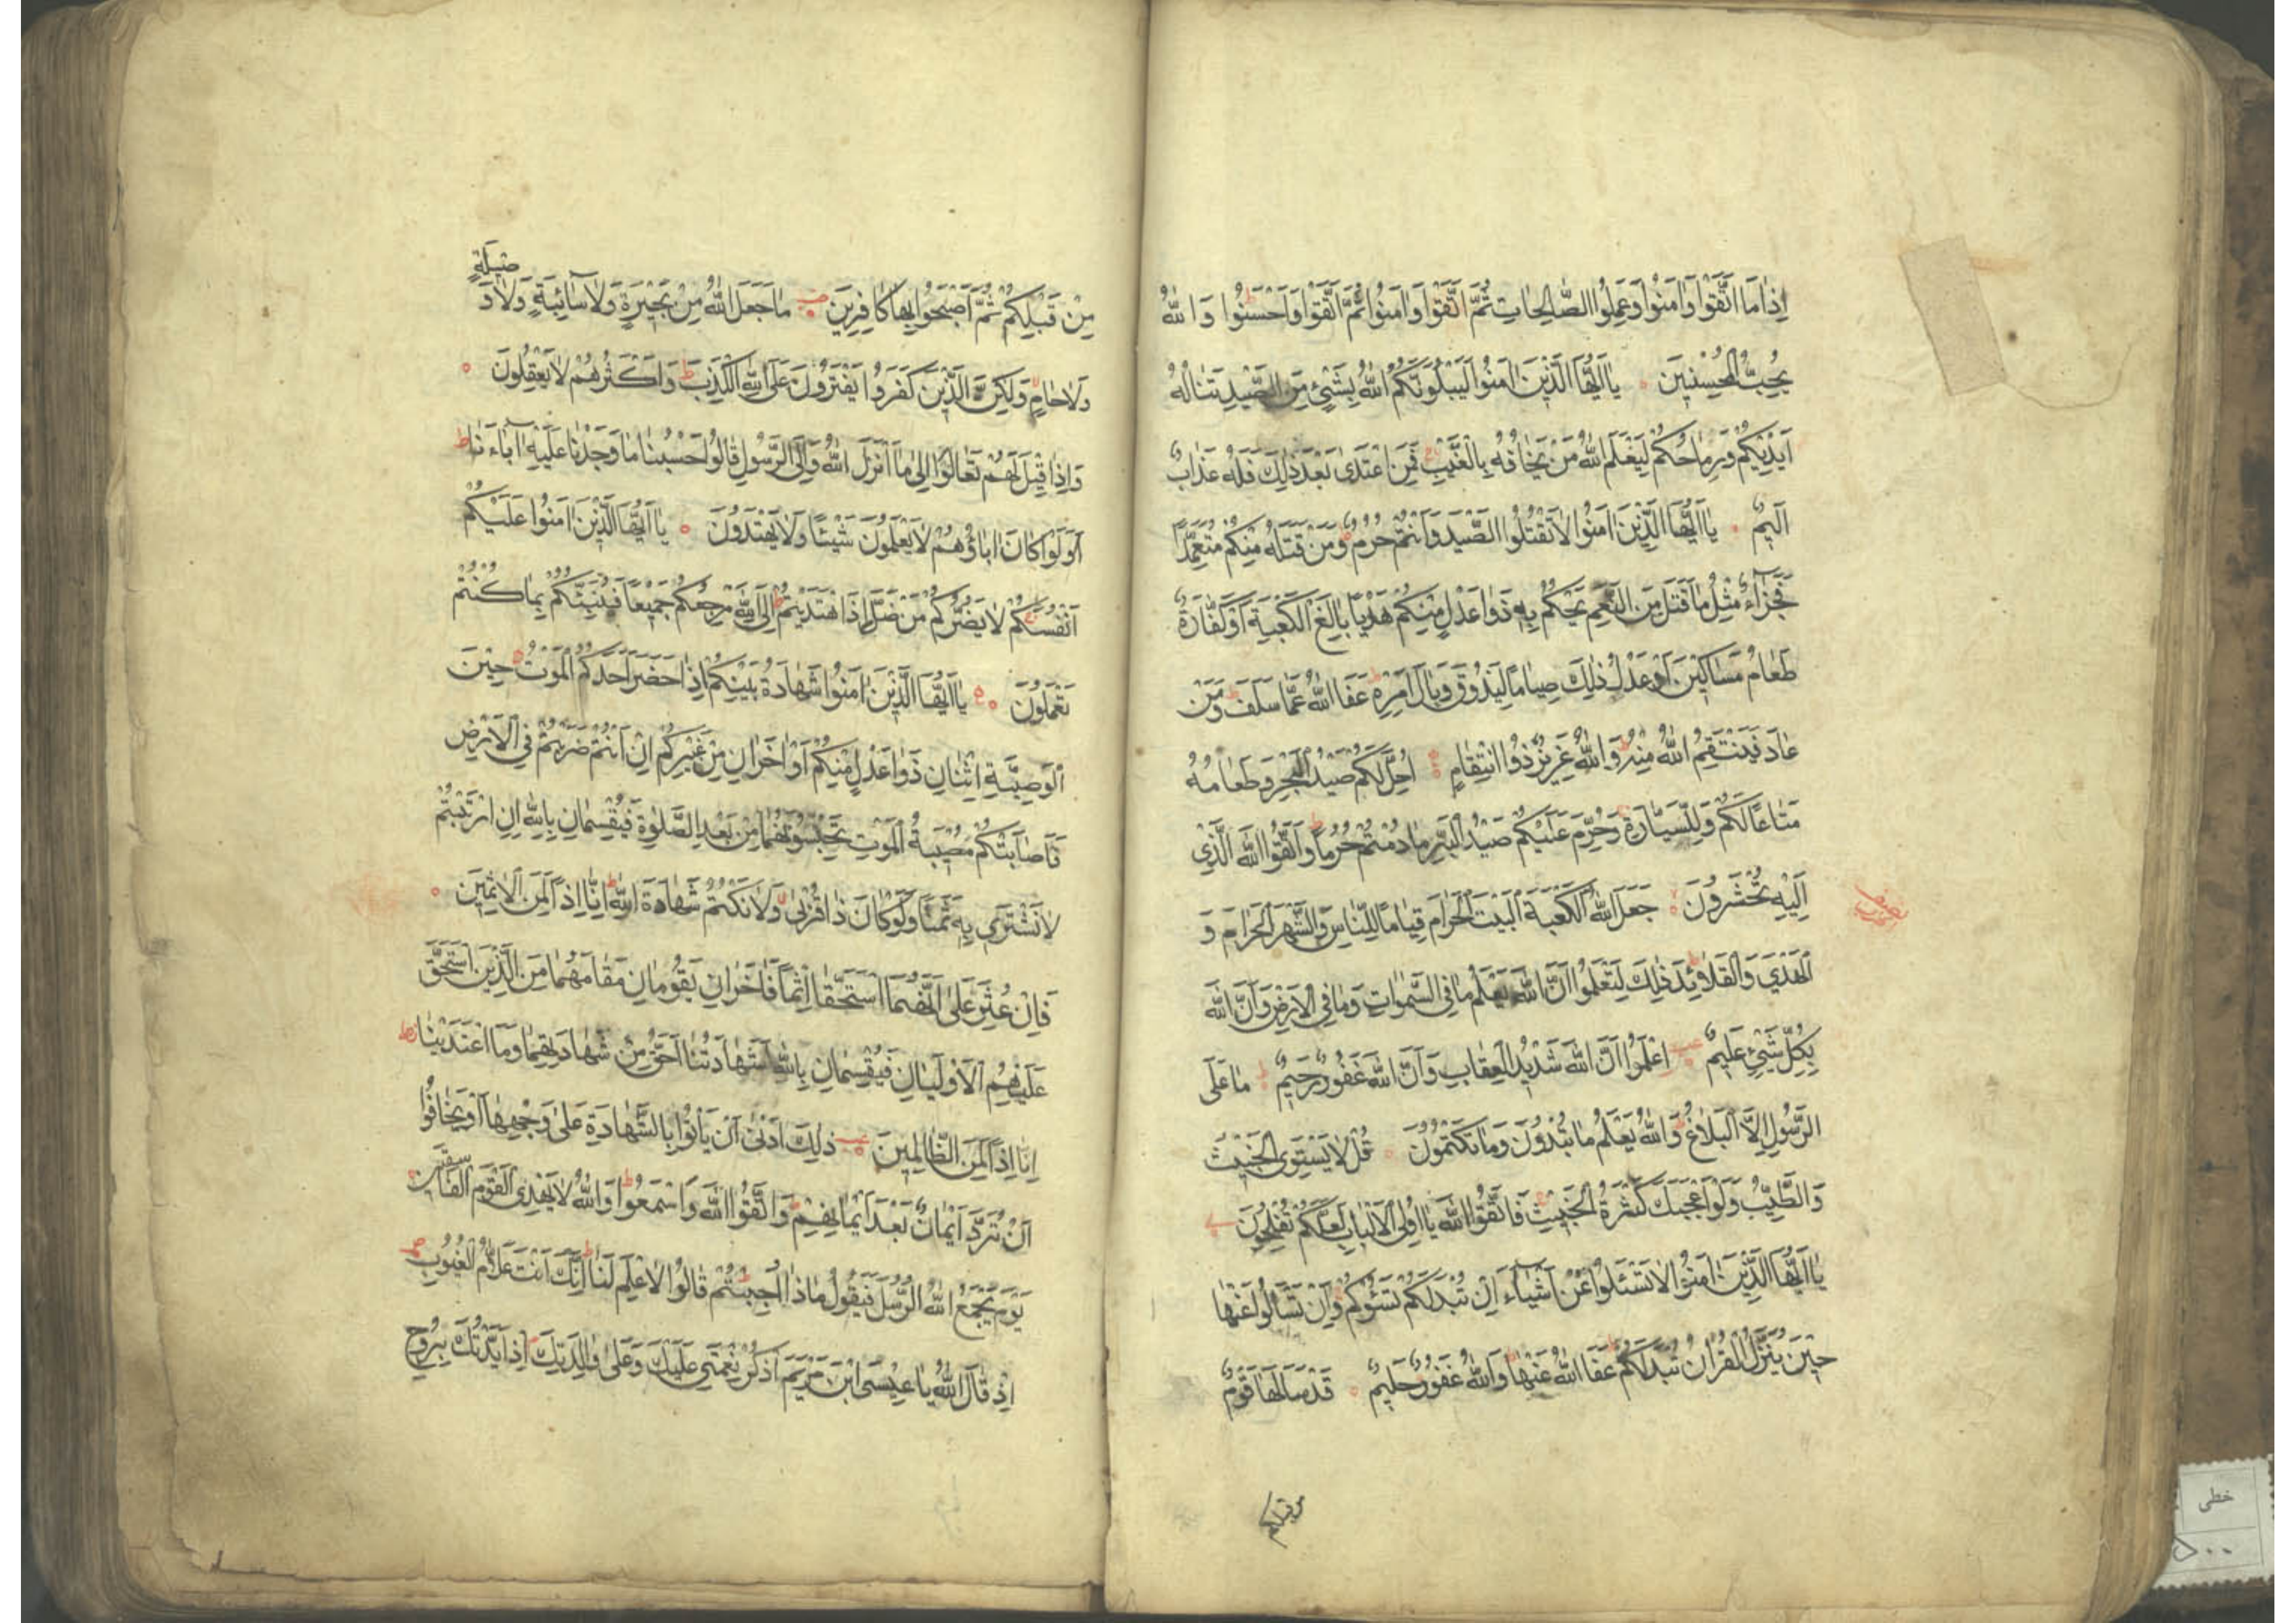 إِذَا مَا اتَّقَوْا وَاٰمَنُوا وَعَمِلُوا الصَّالِحَاتِ ثُمَّ اتَّقَوْا وَاٰمَنُوا ثُمَّ اتَّقَوْا وَاَحْسَنُوا وَاللّٰهُ
يُحِبُّ الْمُحْسِنِينَ يَا اَيُّهَا الَّذِينَ اٰمَنُوا لَيَبْلُوَنَّكُمُ اللّٰهُ بِشَيْءٍ مِنَ الصَّيْدِ تَنَالُهُ
اَيْدِيكُمْ وَرِمَاحُكُمْ لِيَعْلَمَ اللّٰهُ مَنْ يَخَافُهُ بِالْغَيْبِ فَمَنِ اعْتَدٰى بَعْدَ ذٰلِكَ فَلَهُ عَذَابٌ
اَلِيمٌ يَا اَيُّهَا الَّذِينَ اٰمَنُوا لَا تَقْتُلُوا الصَّيْدَ وَاَنْتُمْ حُرُمٌ وَمَنْ قَتَلَهُ مِنْكُمْ مُتَعَمِّدًا
فَجَزَاءٌ مِثْلُ مَا قَتَلَ مِنَ النَّعَمِ يَحْكُمُ بِهِ ذَوَا عَدْلٍ مِنْكُمْ هَدْيًا بَالِغَ الْكَعْبَةِ اَوْ كَفَّارَةٌ
طَعَامُ مَسَاكِينَ اَوْ عَدْلُ ذٰلِكَ صِيَامًا لِيَذُوقَ وَبَالَ اَمْرِهِ عَفَا اللّٰهُ عَمَّا سَلَفَ وَمَنْ
عَادَ فَيَنْتَقِمُ اللّٰهُ مِنْهُ وَاللّٰهُ عَزِيزٌ ذُو انْتِقَامٍ اُحِلَّ لَكُمْ صَيْدُ الْبَحْرِ وَطَعَامُهُ
مَتَاعًا لَكُمْ وَلِلسَّيَّارَةِ وَحُرِّمَ عَلَيْكُمْ صَيْدُ الْبَرِّ مَا دُمْتُمْ حُرُمًا وَاتَّقُوا اللّٰهَ الَّذِي
اِلَيْهِ تُحْشَرُونَ جَعَلَ اللّٰهُ الْكَعْبَةَ الْبَيْتَ الْحَرَامَ قِيَامًا لِلنَّاسِ وَالشَّهْرَ الْحَرَامَ وَ
الْهَدْيَ وَالْقَلَائِدَ ذٰلِكَ لِتَعْلَمُوا اَنَّ اللّٰهَ يَعْلَمُ مَا فِي السَّمٰوَاتِ وَمَا فِي الْاَرْضِ وَاَنَّ اللّٰهَ
بِكُلِّ شَيْءٍ عَلِيمٌ اِعْلَمُوا اَنَّ اللّٰهَ شَدِيدُ الْعِقَابِ وَاَنَّ اللّٰهَ غَفُورٌ رَحِيمٌ مَا عَلَى
الرَّسُولِ اِلَّا الْبَلَاغُ وَاللّٰهُ يَعْلَمُ مَا تُبْدُونَ وَمَا تَكْتُمُونَ قُلْ لَا يَسْتَوِي الْخَبِيثُ
وَالطَّيِّبُ وَلَوْ اَعْجَبَكَ كَثْرَةُ الْخَبِيثِ فَاتَّقُوا اللّٰهَ يَا اُولِي الْاَلْبَابِ لَعَلَّكُمْ تُفْلِحُونَ
يَا اَيُّهَا الَّذِينَ اٰمَنُوا لَا تَسْئَلُوا عَنْ اَشْيَاءَ اِنْ تُبْدَ لَكُمْ تَسُؤْكُمْ وَاِنْ تَسْاَلُوا عَنْهَا
حِينَ يُنَزَّلُ الْقُرْاٰنُ تُبْدَ لَكُمْ عَفَا اللّٰهُ عَنْهَا وَاللّٰهُ غَفُورٌ حَلِيمٌ قَدْ سَاَلَهَا قَوْمٌ
من قبلكم
مِنْ قَبْلِكُمْ ثُمَّ اَصْبَحُوا بِهَا كَافِرِينَ مَا جَعَلَ اللّٰهُ مِنْ بَحِيرَةٍ وَلَا سَائِبَةٍ وَلَا وَصِيلَةٍ
وَلَا حَامٍ وَلٰكِنَّ الَّذِينَ كَفَرُوا يَفْتَرُونَ عَلَى اللّٰهِ الْكَذِبَ وَاَكْثَرُهُمْ لَا يَعْقِلُونَ
وَاِذَا قِيلَ لَهُمْ تَعَالَوْا اِلٰى مَا اَنْزَلَ اللّٰهُ وَاِلَى الرَّسُولِ قَالُوا حَسْبُنَا مَا وَجَدْنَا عَلَيْهِ اٰبَاءَنَا
اَوَلَوْ كَانَ اٰبَاؤُهُمْ لَا يَعْلَمُونَ شَيْئًا وَلَا يَهْتَدُونَ يَا اَيُّهَا الَّذِينَ اٰمَنُوا عَلَيْكُمْ
اَنْفُسَكُمْ لَا يَضُرُّكُمْ مَنْ ضَلَّ اِذَا اهْتَدَيْتُمْ اِلَى اللّٰهِ مَرْجِعُكُمْ جَمِيعًا فَيُنَبِّئُكُمْ بِمَا كُنْتُمْ
تَعْمَلُونَ يَا اَيُّهَا الَّذِينَ اٰمَنُوا شَهَادَةُ بَيْنِكُمْ اِذَا حَضَرَ اَحَدَكُمُ الْمَوْتُ حِينَ
الْوَصِيَّةِ اثْنَانِ ذَوَا عَدْلٍ مِنْكُمْ اَوْ اٰخَرَانِ مِنْ غَيْرِكُمْ اِنْ اَنْتُمْ ضَرَبْتُمْ فِي الْاَرْضِ
فَاَصَابَتْكُمْ مُصِيبَةُ الْمَوْتِ تَحْبِسُونَهُمَا مِنْ بَعْدِ الصَّلٰوةِ فَيُقْسِمَانِ بِاللّٰهِ اِنِ ارْتَبْتُمْ
لَا نَشْتَرِي بِهِ ثَمَنًا وَلَوْ كَانَ ذَا قُرْبٰى وَلَا نَكْتُمُ شَهَادَةَ اللّٰهِ اِنَّا اِذًا لَمِنَ الْاٰثِمِينَ
فَاِنْ عُثِرَ عَلٰى اَنَّهُمَا اسْتَحَقَّا اِثْمًا فَاٰخَرَانِ يَقُومَانِ مَقَامَهُمَا مِنَ الَّذِينَ اسْتَحَقَّ
عَلَيْهِمُ الْاَوْلَيَانِ فَيُقْسِمَانِ بِاللّٰهِ لَشَهَادَتُنَا اَحَقُّ مِنْ شَهَادَتِهِمَا وَمَا اعْتَدَيْنَا
اِنَّا اِذًا لَمِنَ الظَّالِمِينَ ذٰلِكَ اَدْنٰى اَنْ يَأْتُوا بِالشَّهَادَةِ عَلٰى وَجْهِهَا اَوْ يَخَافُوا
اَنْ تُرَدَّ اَيْمَانٌ بَعْدَ اَيْمَانِهِمْ وَاتَّقُوا اللّٰهَ وَاسْمَعُوا وَاللّٰهُ لَا يَهْدِي الْقَوْمَ الْفَاسِقِينَ
يَوْمَ يَجْمَعُ اللّٰهُ الرُّسُلَ فَيَقُولُ مَاذَا اُجِبْتُمْ قَالُوا لَا عِلْمَ لَنَا اِنَّكَ اَنْتَ عَلَّامُ الْغُيُوبِ
اِذْ قَالَ اللّٰهُ يَا عِيسَى ابْنَ مَرْيَمَ اذْكُرْ نِعْمَتِي عَلَيْكَ وَعَلٰى وَالِدَتِكَ اِذْ اَيَّدْتُكَ بِرُوحِ
خطی
۵۰۰